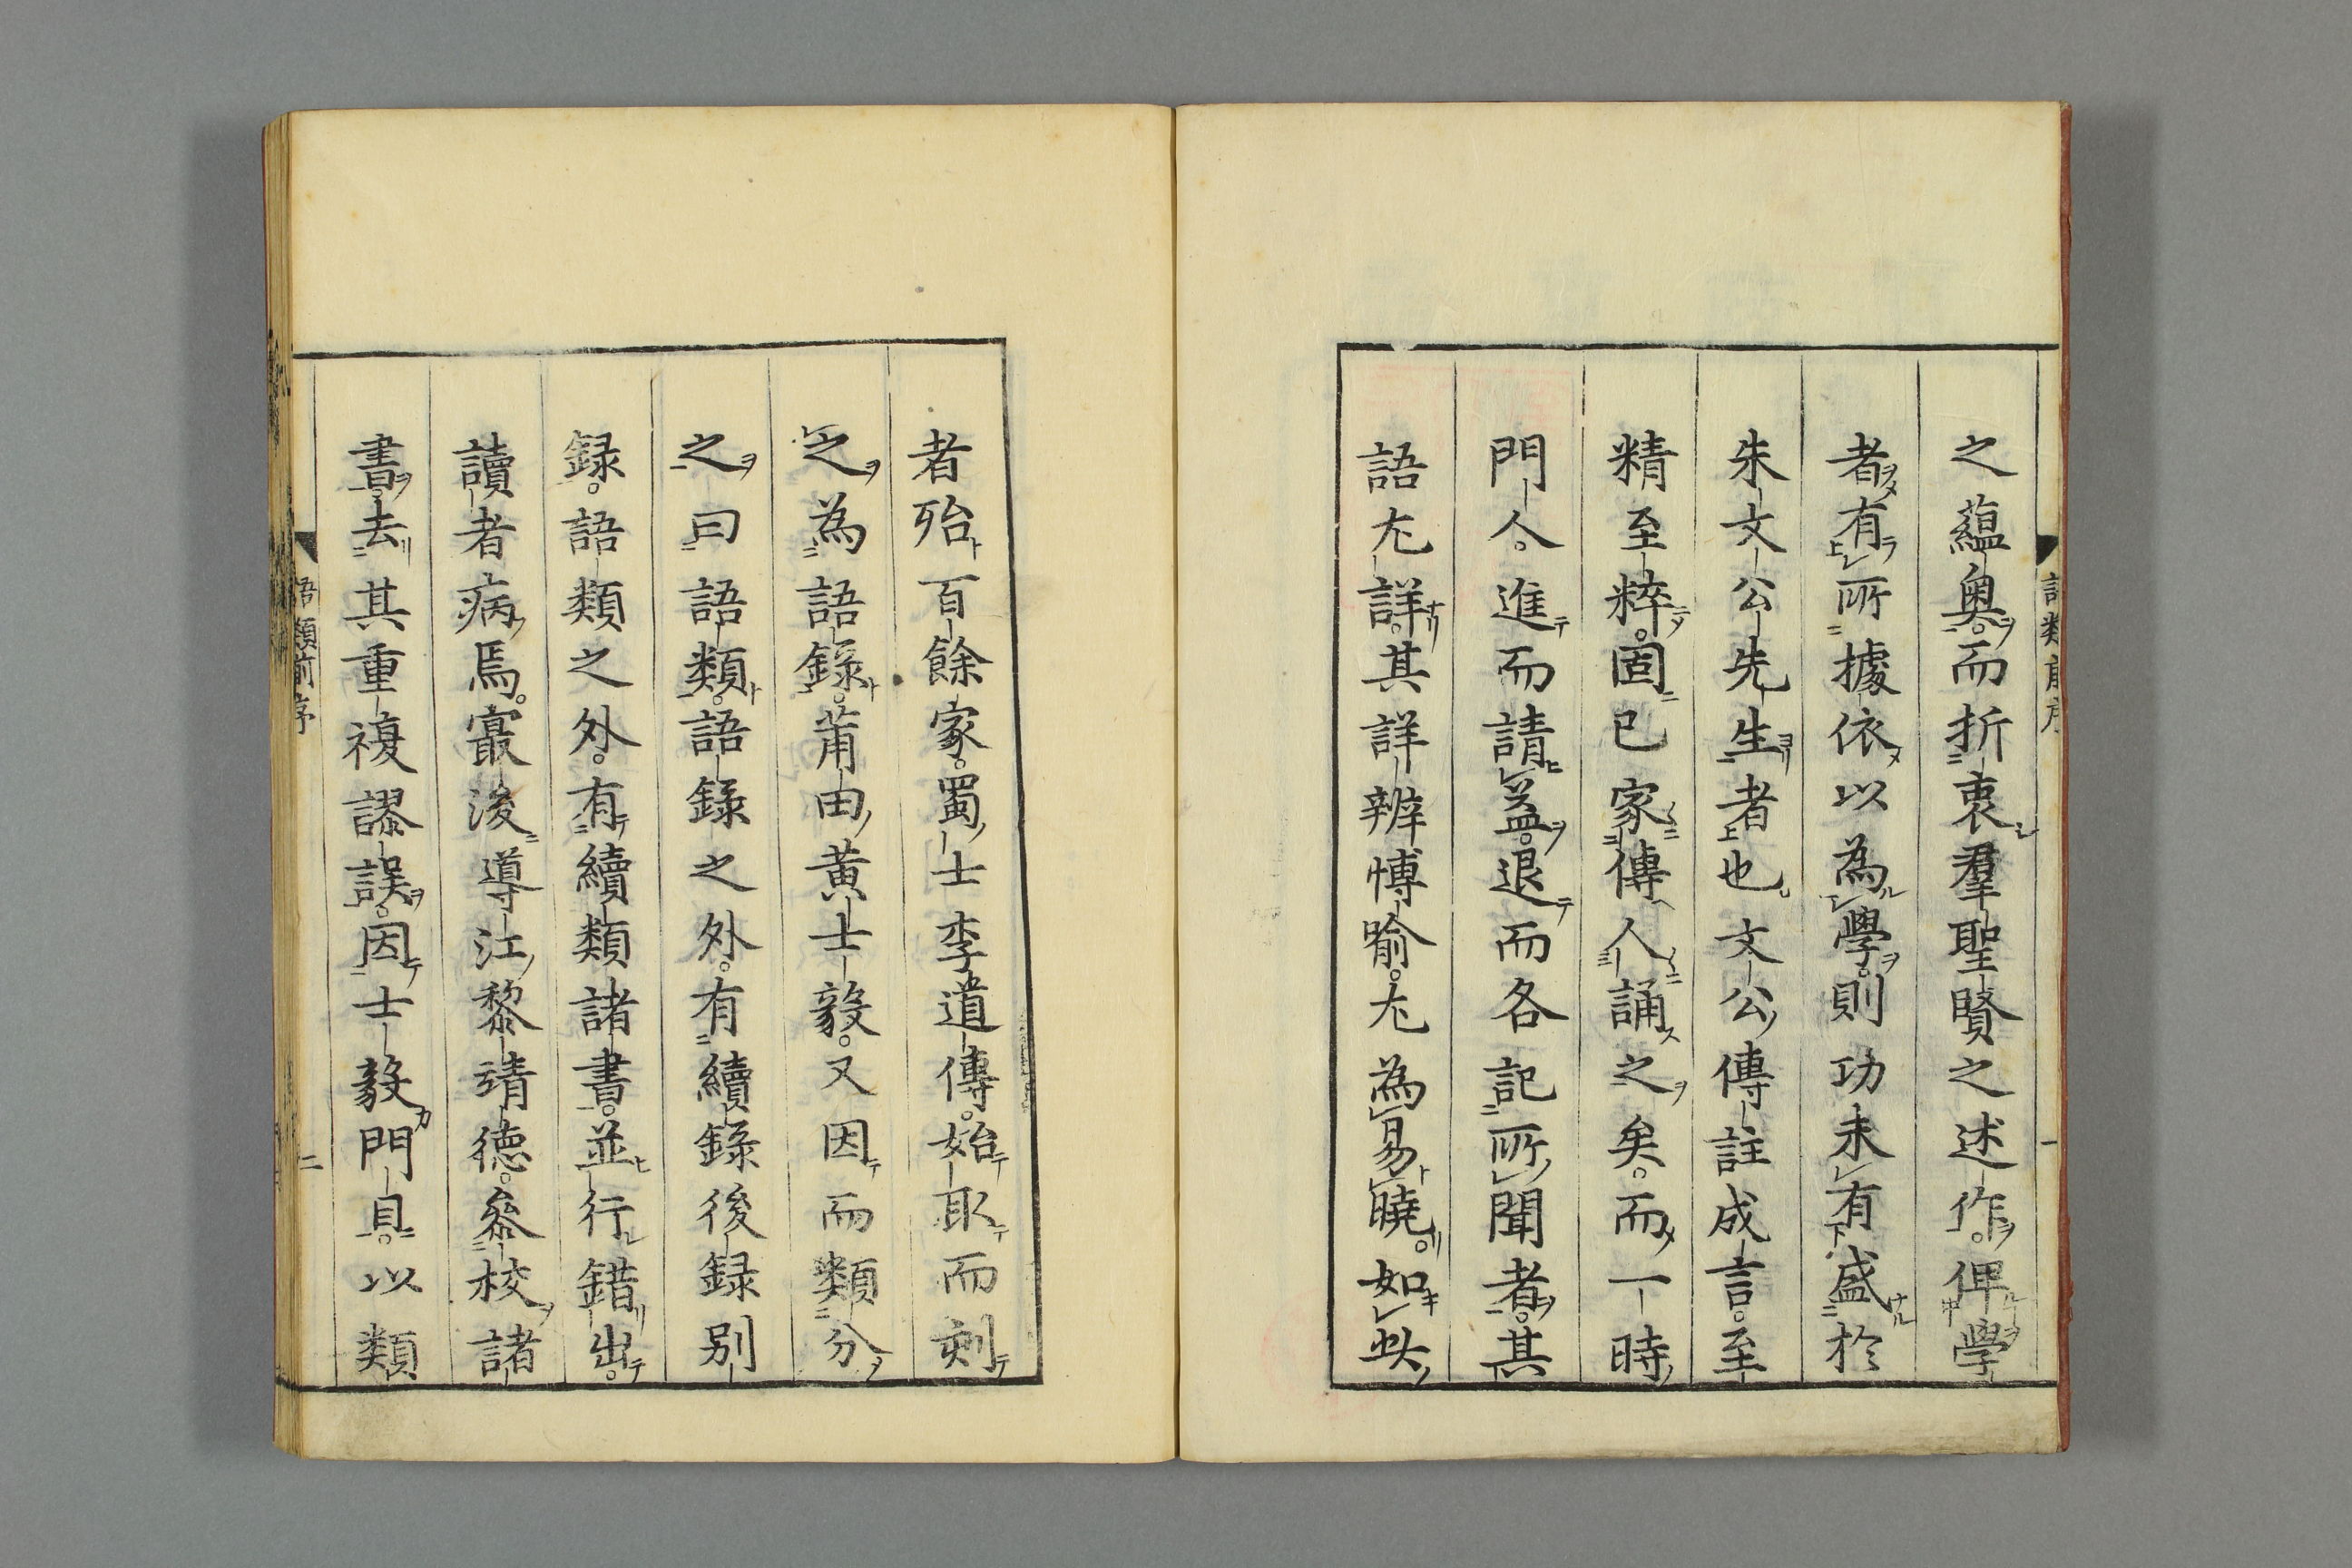 之蘊奧而折衷羣聖賢之述作俾學
者有所據依以為學則功未有盛於
朱文公先生者也文公傳註成言至
精至粹固已家傳人誦之矣而一時
門人進而請益退而各記所聞者其
語尢詳其詳辨愽喻尢為易曉如此
者殆百餘家蜀士李道傳始取而刻
之為語錄莆田黄士毅又因而類分
之曰語類語錄之外有續錄後録別
録語類之外有續類諸書並行錯出
讀者病焉寂後導江黎靖德叅校諸
書去其重複謬誤因士毅門目以類
語類前序
二